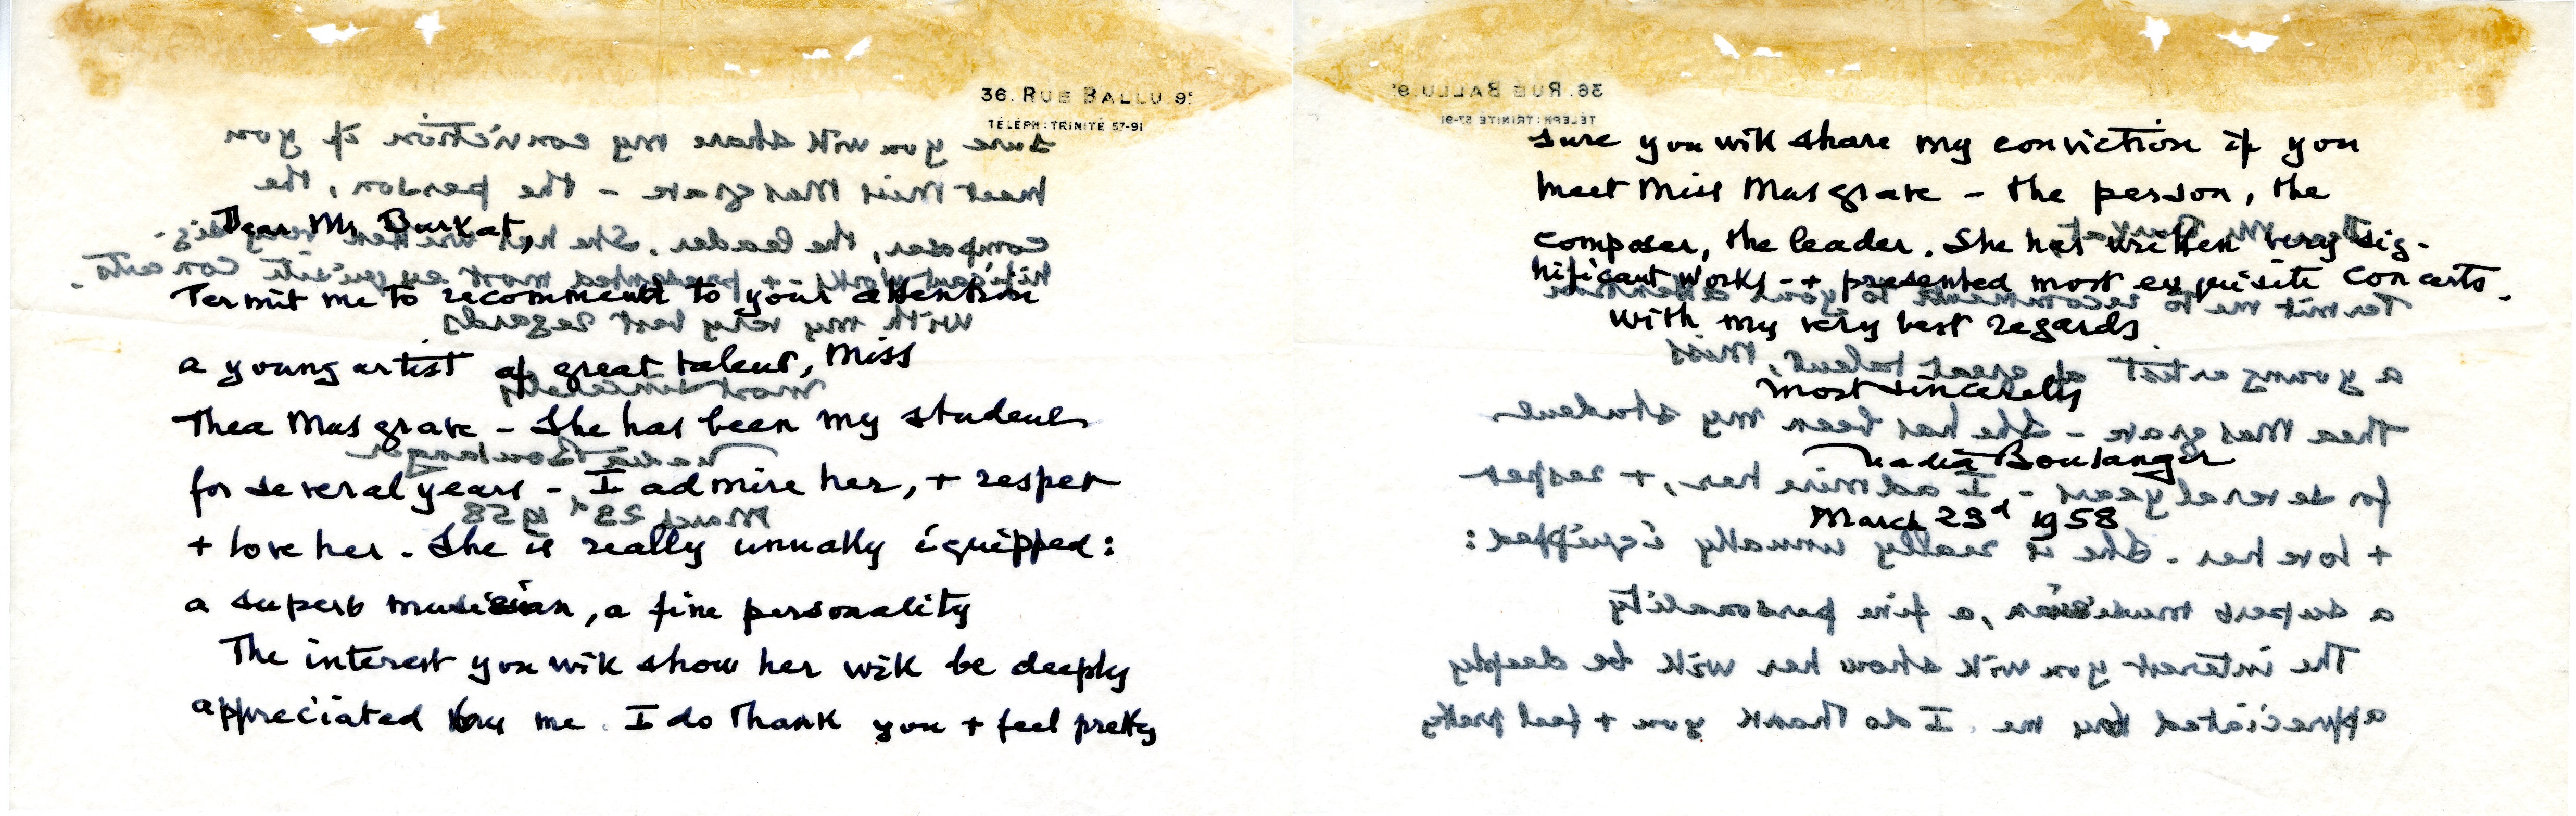 36. RUE BALLU. 9e
TÉLÉPH: TRINITÉ 57-91
Dear Mr Burkat,
Permit me to recommend to your attention
a young artist of great talent, Miss
Thea Musgrave – She has been my student
for several years – I admire her, + respect
+ love her. She is really unually equipped:
a superb musician, a fine personality
The interest you will show her will be deeply
appreciated by me. I do thank you + feel pretty
sure you will share my conviction if you
meet Miss Musgrave – the person, the
composer, the leader. She has written very sig-
nificant works – + presented most exquisite concerts.
With my very best regards
most sincerely
Nadia Boulanger
March 23d 1958